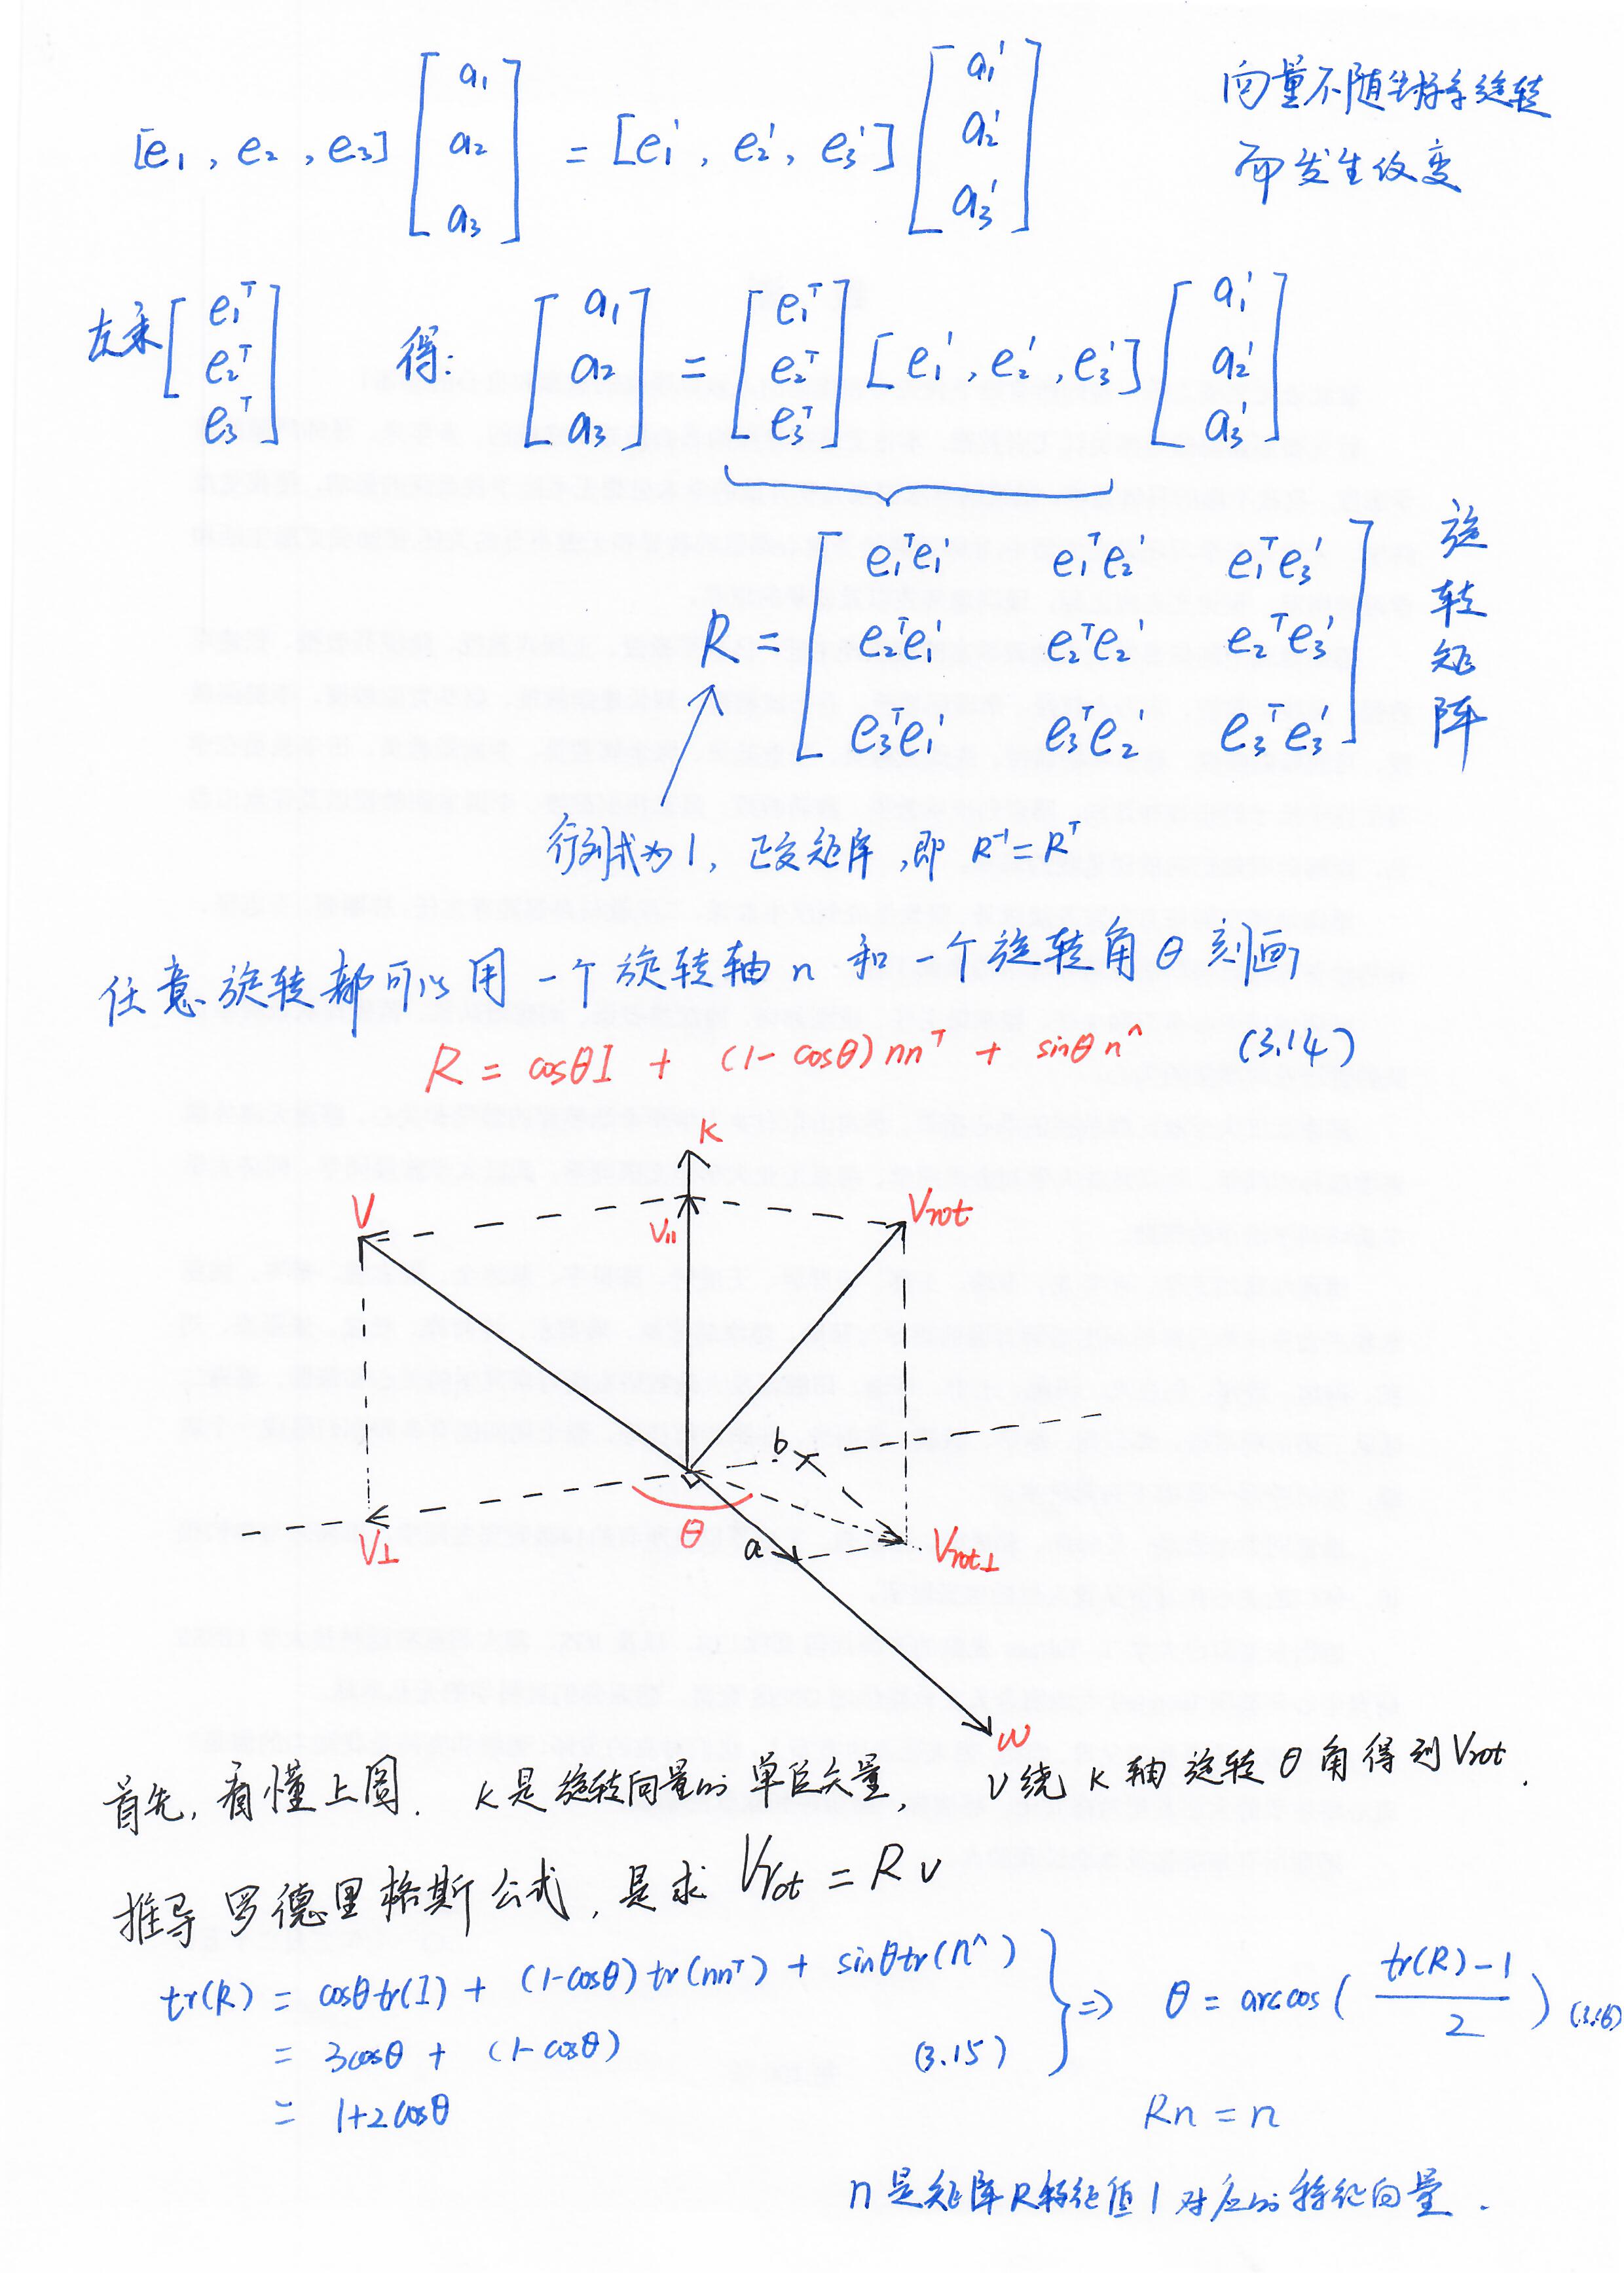 [e₁, e₂, e₃] [a₁ a₂ a₃] = [e₁', e₂', e₃'] [a₁' a₂' a₃']
向量不随坐标系旋转
而发生改变
左乘 [e₁ᵀ e₂ᵀ e₃ᵀ] 得: [a₁ a₂ a₃] = [e₁ᵀ e₂ᵀ e₃ᵀ] [e₁', e₂', e₃'] [a₁' a₂' a₃']
R = [e₁ᵀe₁' e₁ᵀe₂' e₁ᵀe₃'
e₂ᵀe₁' e₂ᵀe₂' e₂ᵀe₃'
e₃ᵀe₁' e₃ᵀe₂' e₃ᵀe₃']
旋转矩阵
行列式为1, 正交矩阵, 即 R⁻¹=Rᵀ
任意旋转都可以用一个旋转轴 n 和一个旋转角 θ 刻画
R = cosθI + (1-cosθ)nnᵀ + sinθ n^ (3.14)
K
V
V∥
Vrot
b
V⊥
θ
a
Vrot⊥
w
首先, 看懂上图. K是旋转向量的单位矢量, V绕 K 轴旋转 θ 角得到 Vrot.
推导罗德里格斯公式, 是求 Vrot = R v
tr(R) = cosθtr(I) + (1-cosθ)tr(nnᵀ) + sinθtr(n^)
= 3cosθ + (1-cosθ) (3.15)
= 1+2cosθ
⇒ θ = arccos( (tr(R)-1)/2 ) (3.16)
Rn = n
n是矩阵R特征值1对应的特征向量.